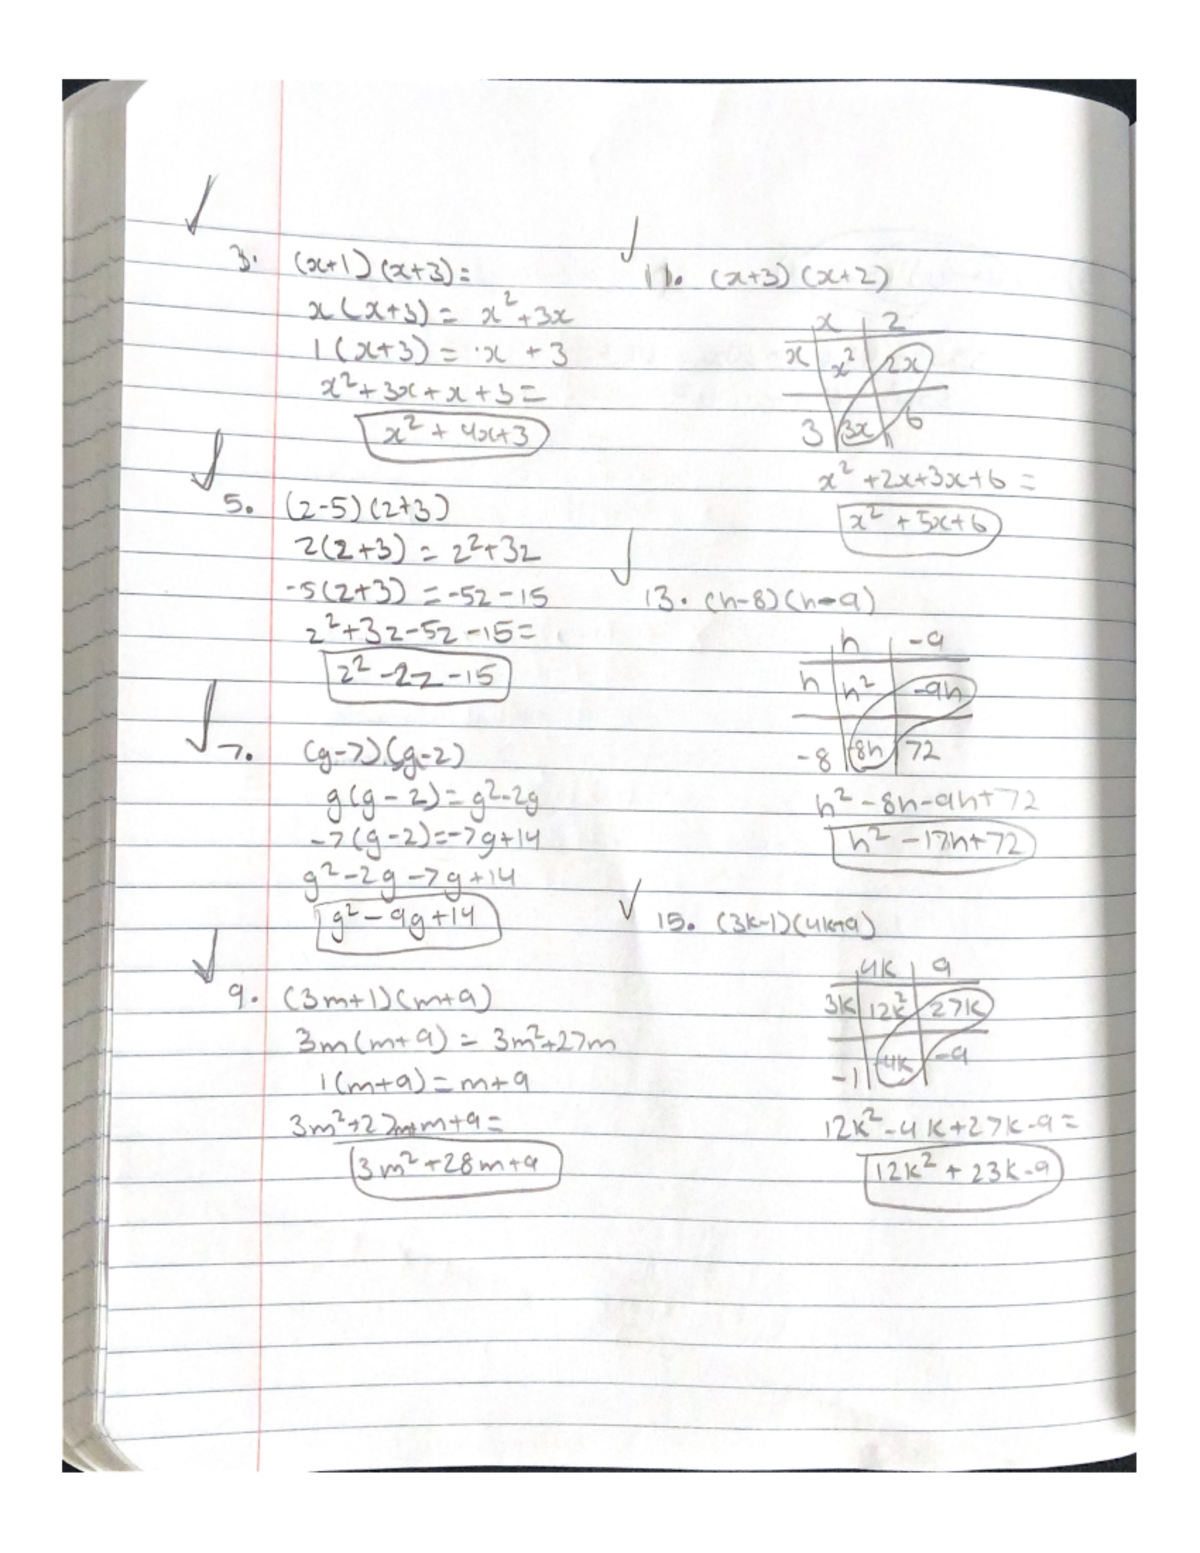 3. (x+1)(x+3)=
x(x+3) = x²+3x
1(x+3) = x + 3
x²+3x+x+3=
x² + 4x+3
5. (z-5)(z+3)
z(z+3) = z²+3z
-5(z+3) = -5z-15
z²+3z-5z-15=
z²-2z-15
7. (g-7)(g-2)
g(g-2)=g²-2g
-7(g-2)=-7g+14
g²-2g-7g+14
g²-9g+14
9. (3m+1)(m+9)
3m(m+9) = 3m²+27m
1(m+9)=m+9
3m²+27m+m+9=
3m²+28m+9
11. (x+3)(x+2)
x 2
x x² 2x
3 3x 6
x²+2x+3x+6=
x²+5x+6
13. (h-8)(h-9)
h -9
h h² -9h
-8 -8h 72
h²-8h-9h+72
h²-17h+72
15. (3k-1)(4k+9)
4k 9
3k 12k² 27k
-1 -4k -9
12k²-4k+27k-9=
12k²+23k-9